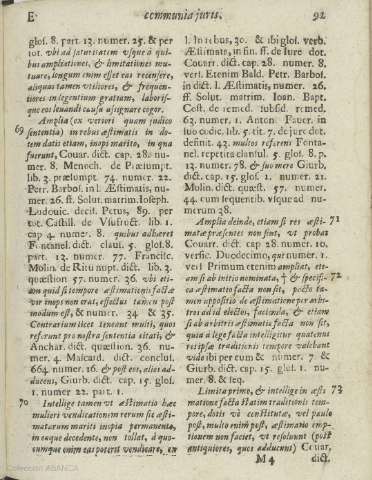 E communia juris. 92
glos. 8. part. 13. numer. 25. & per
tot. ubi ad satietatem usque à qui-
bus ampliationes, & limitationes mu-
tuare, longum enim esset eas recensere,
aliquas tamen utiliores, & frequen-
tiores in legentium gratiam, laboris-
que eos levandi causa assignare cogor.
Amplia (ex veriori quam judico
69 sententia) in rebus æstimatis in do-
tem datis etiam, inopi marito, in qua
fuerunt, Couar. dict. cap. 28. nu-
mer. 8. Menoch. de Præsumpt.
lib. 3. præsumpt. 74. numer. 22.
Petr. Barbos. in l. Æstimatis, nu-
mer. 26. ff. Solut. matrim. Ioseph.
Ludouic. decis. Petus, 89. per
tot. Castill. de Usufruct. lib. 1.
cap. 4. numer. 8. quibus adhæret
Fontanel. dict. claus. 5. glos. 8.
part. 13. numer. 77. Francisc.
Molin. de Ritu nupt. dict. lib. 3.
quæstion. 57. numer. 26. ubi eti-
am quid si tempore æstimationis factæ
vir inops non erat, effectus tamen post
modum est, & numer. 34. & 35.
Contrarium licet teneant multi, quos
referunt pro nostra sententia citati, &
Anchar. dict. quæstion. 26. nu-
mer. 4. Mascard. dict. conclus.
664. numer. 16. & post eos, alios ad-
ducens, Giurb. dict. cap. 15. glos.
1. numer. 22. part. 1.
70 Intellige tamen ut æstimatio hæc
mulieri vendicationem rerum sic æsti-
matarum mariti inopia permanente,
in eoque decedente, non tollat, à quo-
cumque enim eas poterit vendicare, ex
l. In rebus, 30. & ibi glos. verb.
Æstimata, in fin. ff. de Iure dot.
Couarr. dict. cap. 28. numer. 8.
vers. Etenim Bald. Petr. Barbos.
in dict. l. Æstimatis, numer. 26.
ff. Solut. matrim. Ioan. Bapt.
Cost. de remed. subsid. remed.
63. numer. 1. Anton. Faber. in
suo codic. lib. 5. tit. 7. de jure dot.
definit. 43. multos referens Fonta-
nel. repetitis clausul. 5. glos. 8. p.
12. numer. 78. & suo more Giurb.
dict. cap. 15. glos. 1. numer. 21.
Molin. dict. quæst. 57. numer.
44. cum sequentib. usque ad nu-
merum 38.
Amplia deinde, etiam si res æsti- 71
matæ præsentes non sint, ut probat
Couarr. dict. cap. 28. numer. 10.
versic. Duodecimo, qui numer. 1.
vers. Primum etenim ampliat, eti-
am si ab initio nominata, † & specifi- 72
ca æstimatio facta non sit, pacto ta-
men appositio de æstimatione per arbi-
tros ad id electos, facienda, & etiam
si ab arbitris æstimatio facta non sit,
quia à lege facta intelligitur quatenus
res ipsæ traditionis tempore valebant
vide ibi per eum & numer. 7. &
Giurb. dict. cap. 15. glos. 1. nu-
mer. 8. & seq.
Limita primo, & intellige in æsti- 73
matione facta statim traditionis tem-
pore, dotis vel constitutæ, vel paulo
post, multo enim post, æstimatio emp-
tionem non faciet, ut resolvunt (post
antiquiores, quos adducunt) Couar.
M 4 dict.
Colección ABANCA